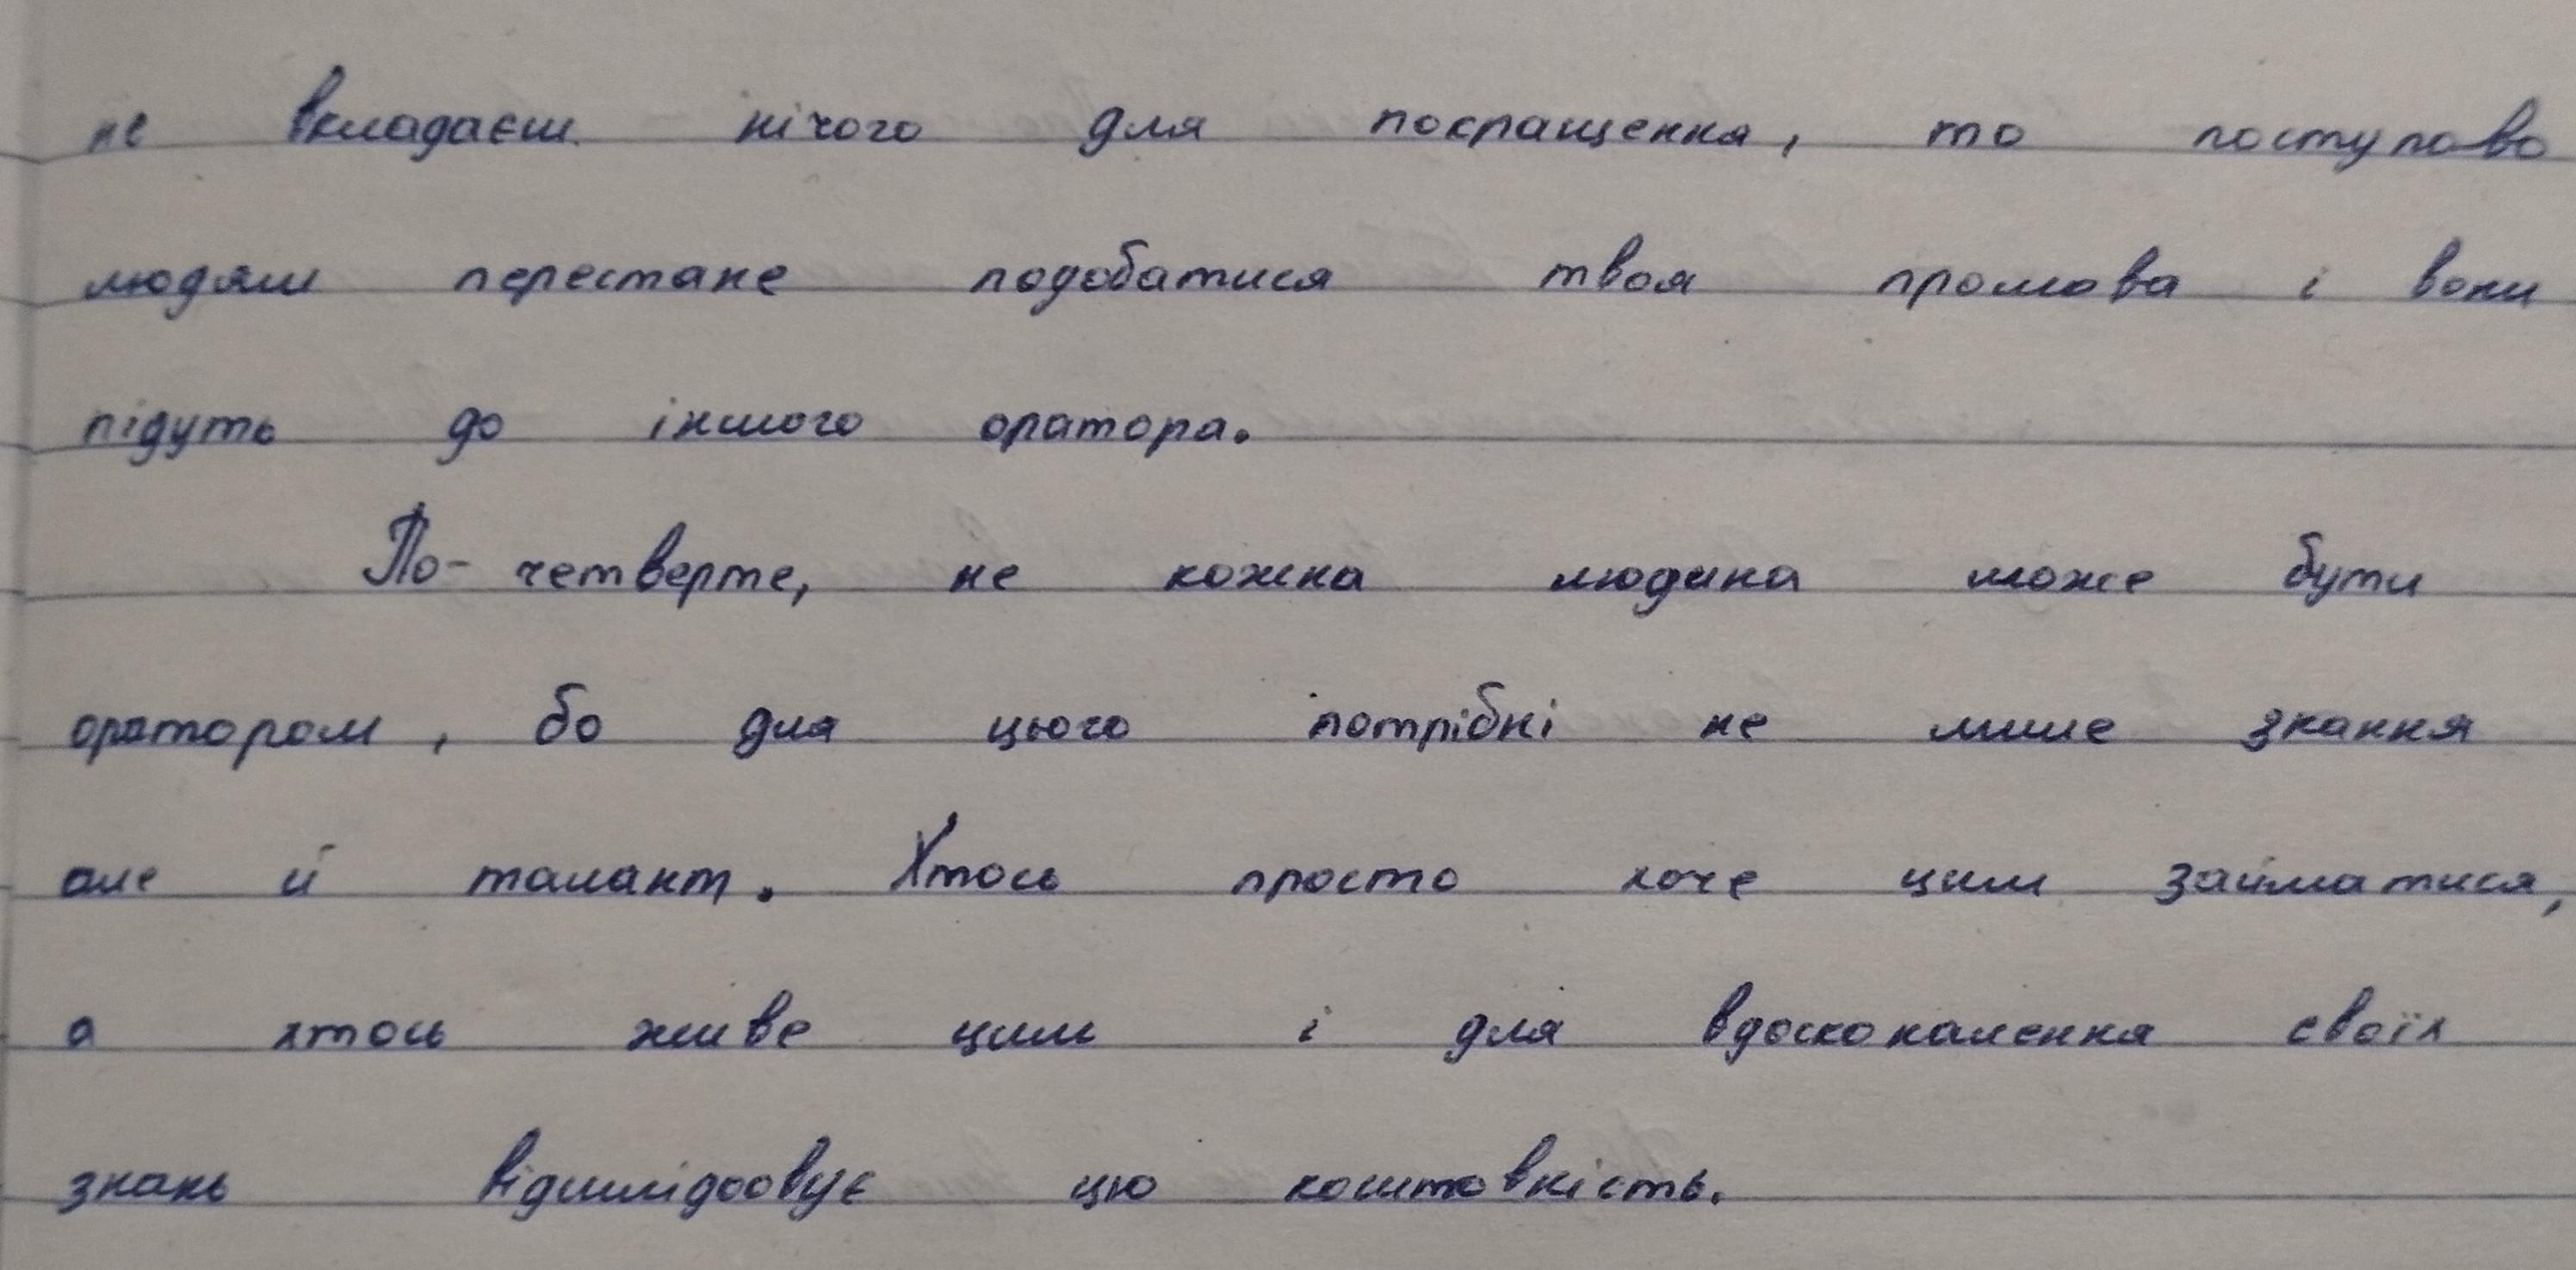 не вкладаєш нічого для покращення, то поступово
людям перестане подобатися твоя промова і вони
підуть до іншого оратора.
По-четверте, не кожна людина може бути
оратором, бо для цього потрібні не лише знання
але й талант. Хтось просто хоче цим займатися,
а хтось живе цим і для вдосконалення своїх
знань відшлідоовує цю коштовність.